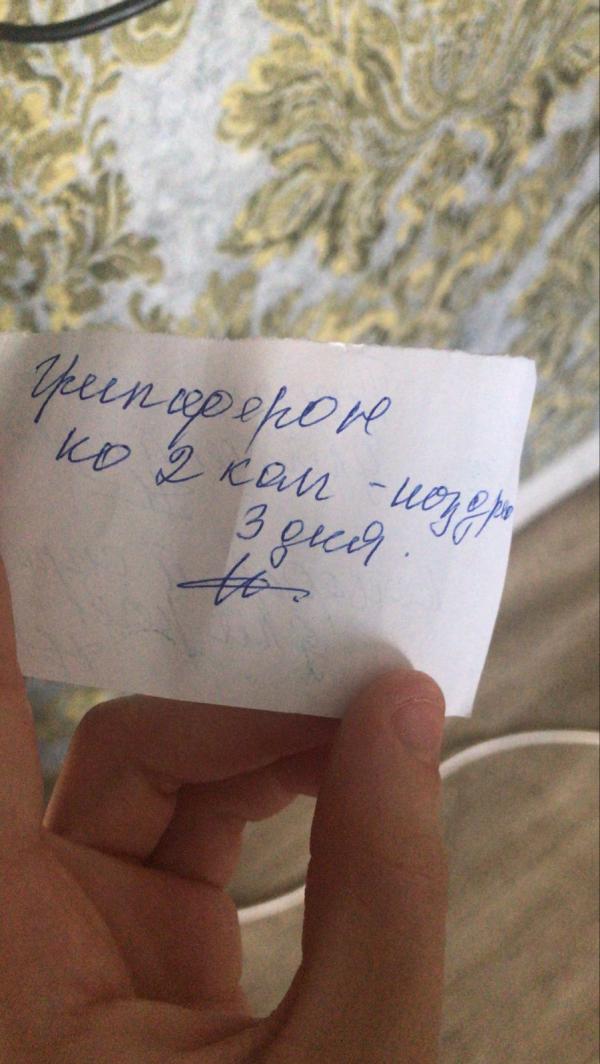 Грипферон
по 2 кап - ноздрю
3 дня.